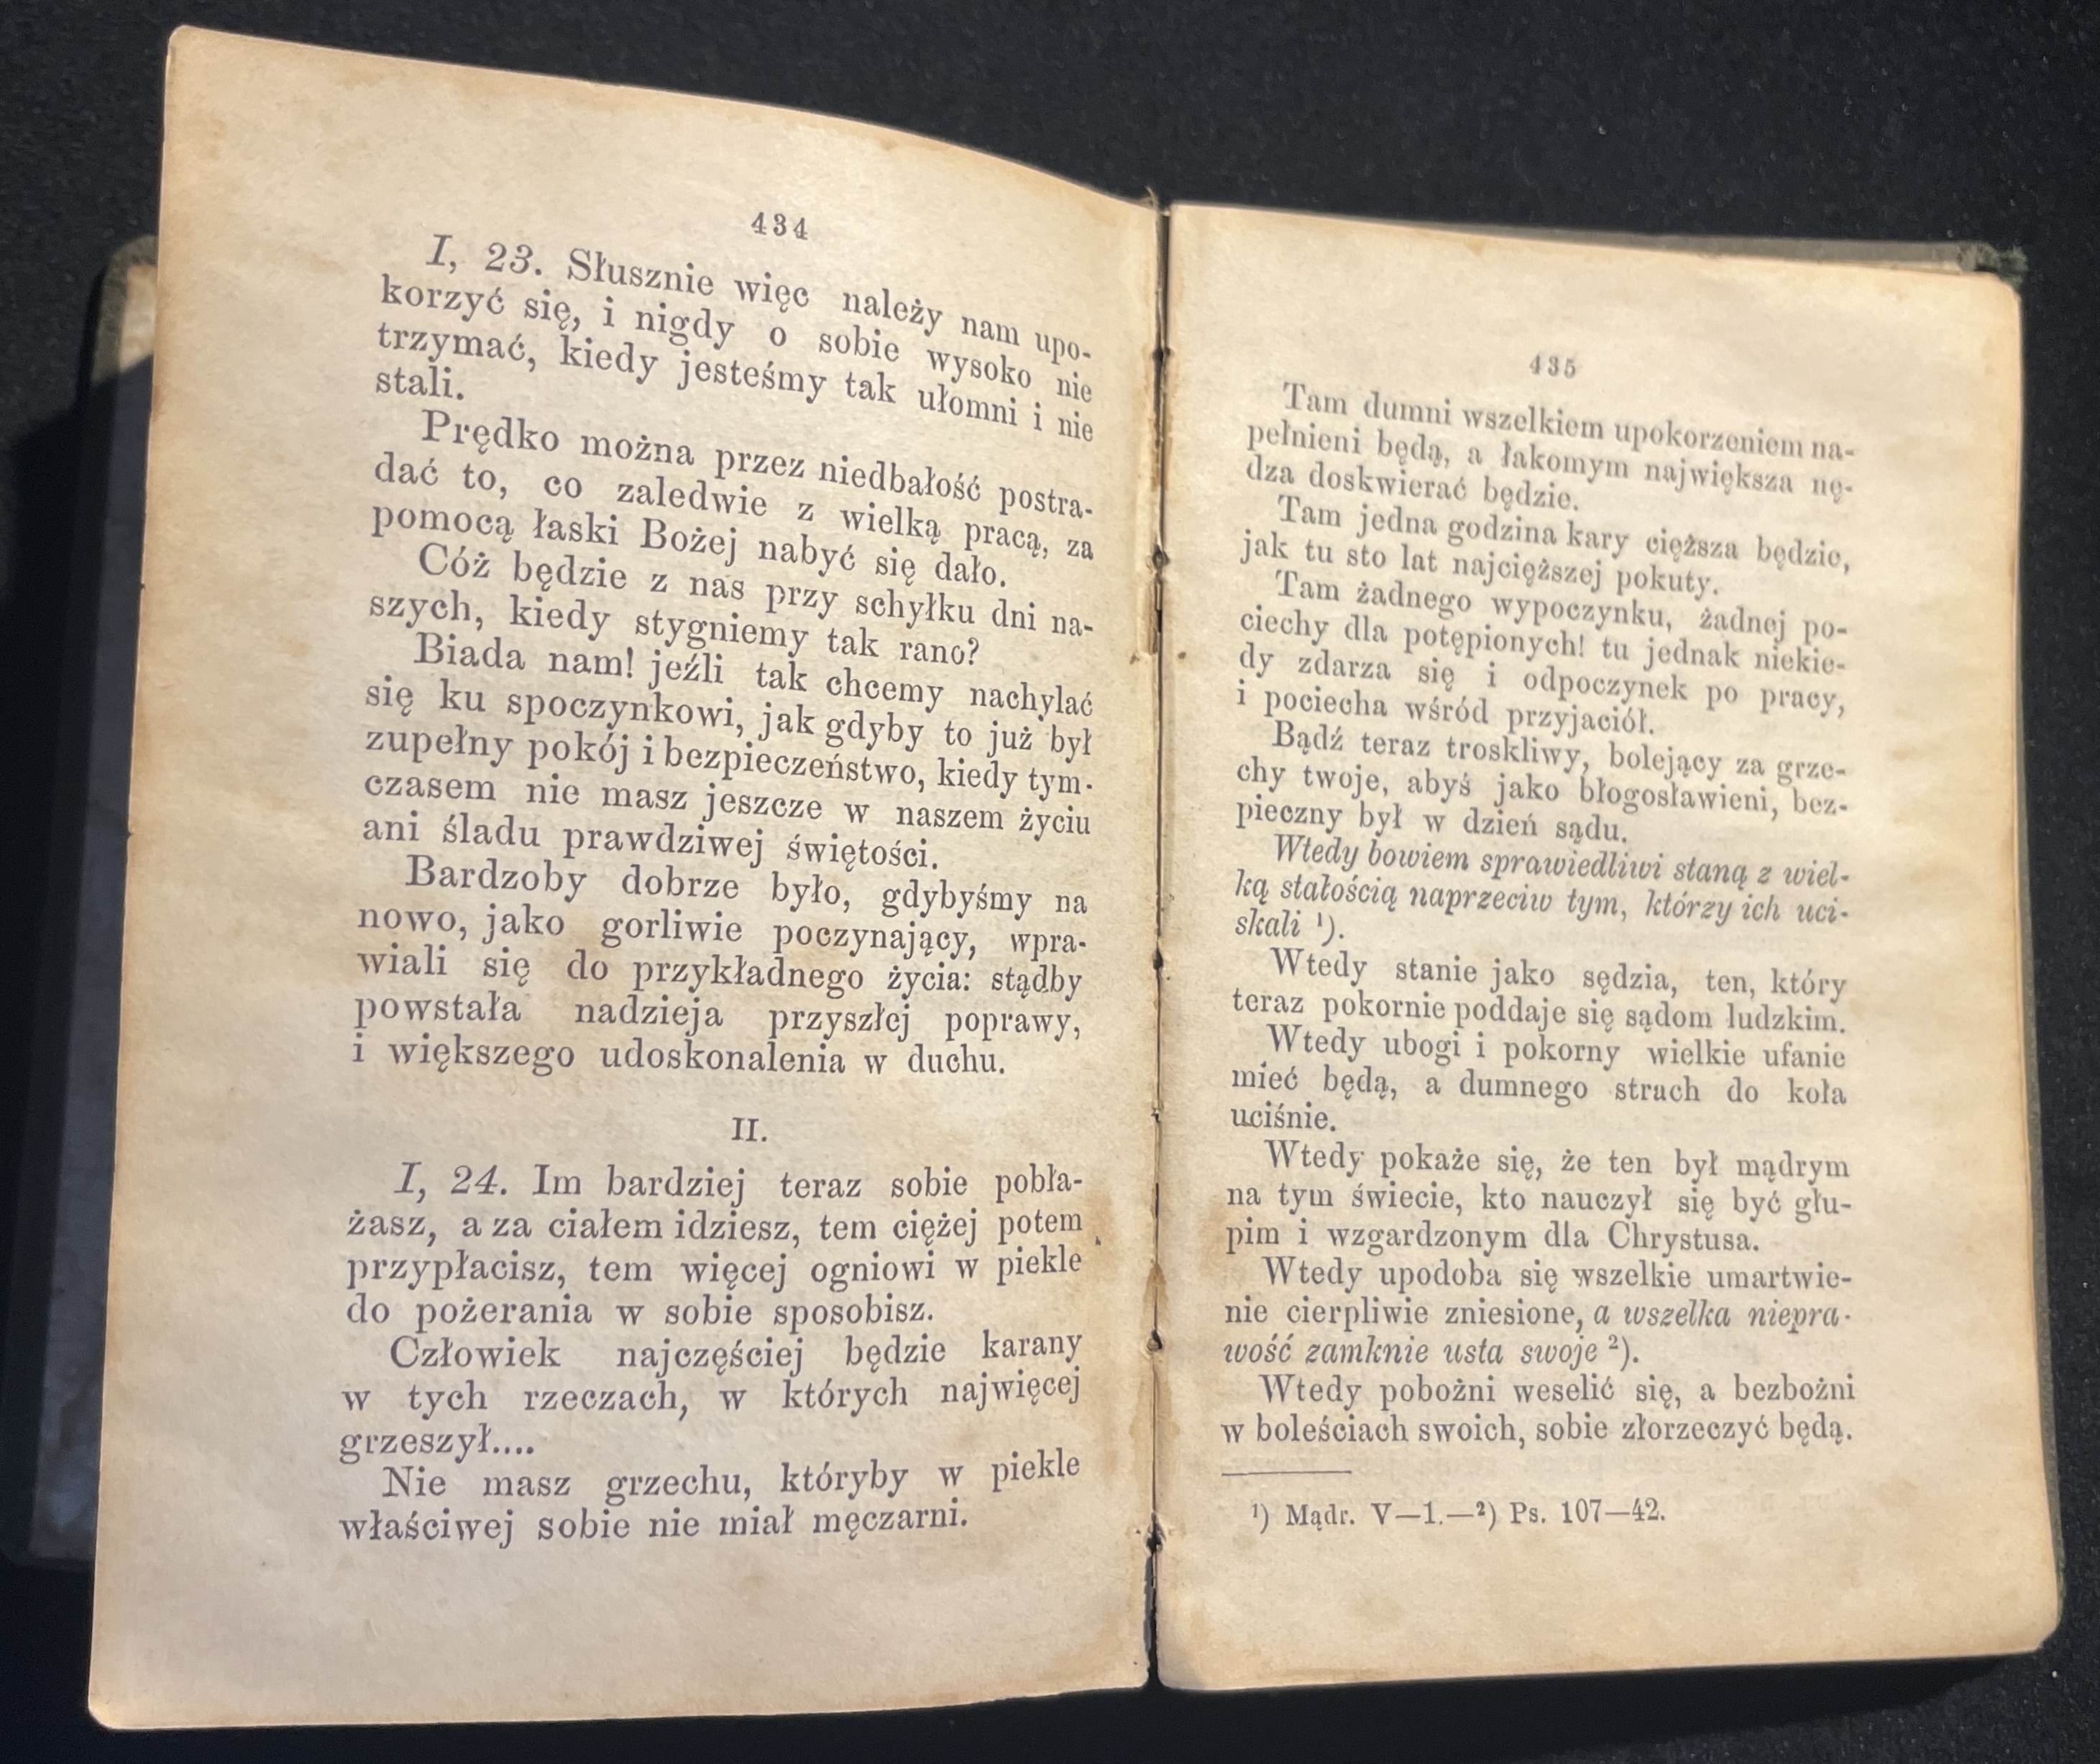 434
I, 23. Słusznie więc należy nam upo-
korzyć się, i nigdy o sobie wysoko nie
trzymać, kiedy jesteśmy tak ułomni i nie
stali.
Prędko można przez niedbałość postra-
dać to, co zaledwie z wielką pracą, za
pomocą łaski Bożej nabyć się dało.
Cóż będzie z nas przy schyłku dni na-
szych, kiedy stygniemy tak rano?
Biada nam! jeźli tak chcemy nachylać
się ku spoczynkowi, jak gdyby to już był
zupełny pokój i bezpieczeństwo, kiedy tym-
czasem nie masz jeszcze w naszem życiu
ani śladu prawdziwej świętości.
Bardzoby dobrze było, gdybyśmy na
nowo, jako gorliwie poczynający, wpra-
wiali się do przykładnego życia: stądby
powstała nadzieja przyszłej poprawy,
i większego udoskonalenia w duchu.
II.
I, 24. Im bardziej teraz sobie pobła-
żasz, a za ciałem idziesz, tem ciężej potem
przypłacisz, tem więcej ogniowi w piekle
do pożerania w sobie sposobisz.
Człowiek najczęściej będzie karany
w tych rzeczach, w których najwięcej
grzeszył....
Nie masz grzechu, któryby w piekle
właściwej sobie nie miał męczarni.
435
Tam dumni wszelkiem upokorzeniem na-
pełnieni będą, a łakomym największa nę-
dza doskwierać będzie.
Tam jedna godzina kary cięższa będzie,
jak tu sto lat najcięższej pokuty.
Tam żadnego wypoczynku, żadnej po-
ciechy dla potępionych! tu jednak niekie-
dy zdarza się i odpoczynek po pracy,
i pociecha wśród przyjaciół.
Bądź teraz troskliwy, bolejący za grze-
chy twoje, abyś jako błogosławieni, bez-
pieczny był w dzień sądu.
Wtedy bowiem sprawiedliwi staną z wiel-
ką stałością naprzeciw tym, którzy ich uci-
skali ¹).
Wtedy stanie jako sędzia, ten, który
teraz pokornie poddaje się sądom ludzkim.
Wtedy ubogi i pokorny wielkie ufanie
mieć będą, a dumnego strach do koła
uciśnie.
Wtedy pokaże się, że ten był mądrym
na tym świecie, kto nauczył się być głu-
pim i wzgardzonym dla Chrystusa.
Wtedy upodoba się wszelkie umartwie-
nie cierpliwie zniesione, a wszelka niepra-
wość zamknie usta swoje ²).
Wtedy pobożni weselić się, a bezbożni
w boleściach swoich, sobie złorzeczyć będą.
¹) Mądr. V—1.—²) Ps. 107—42.